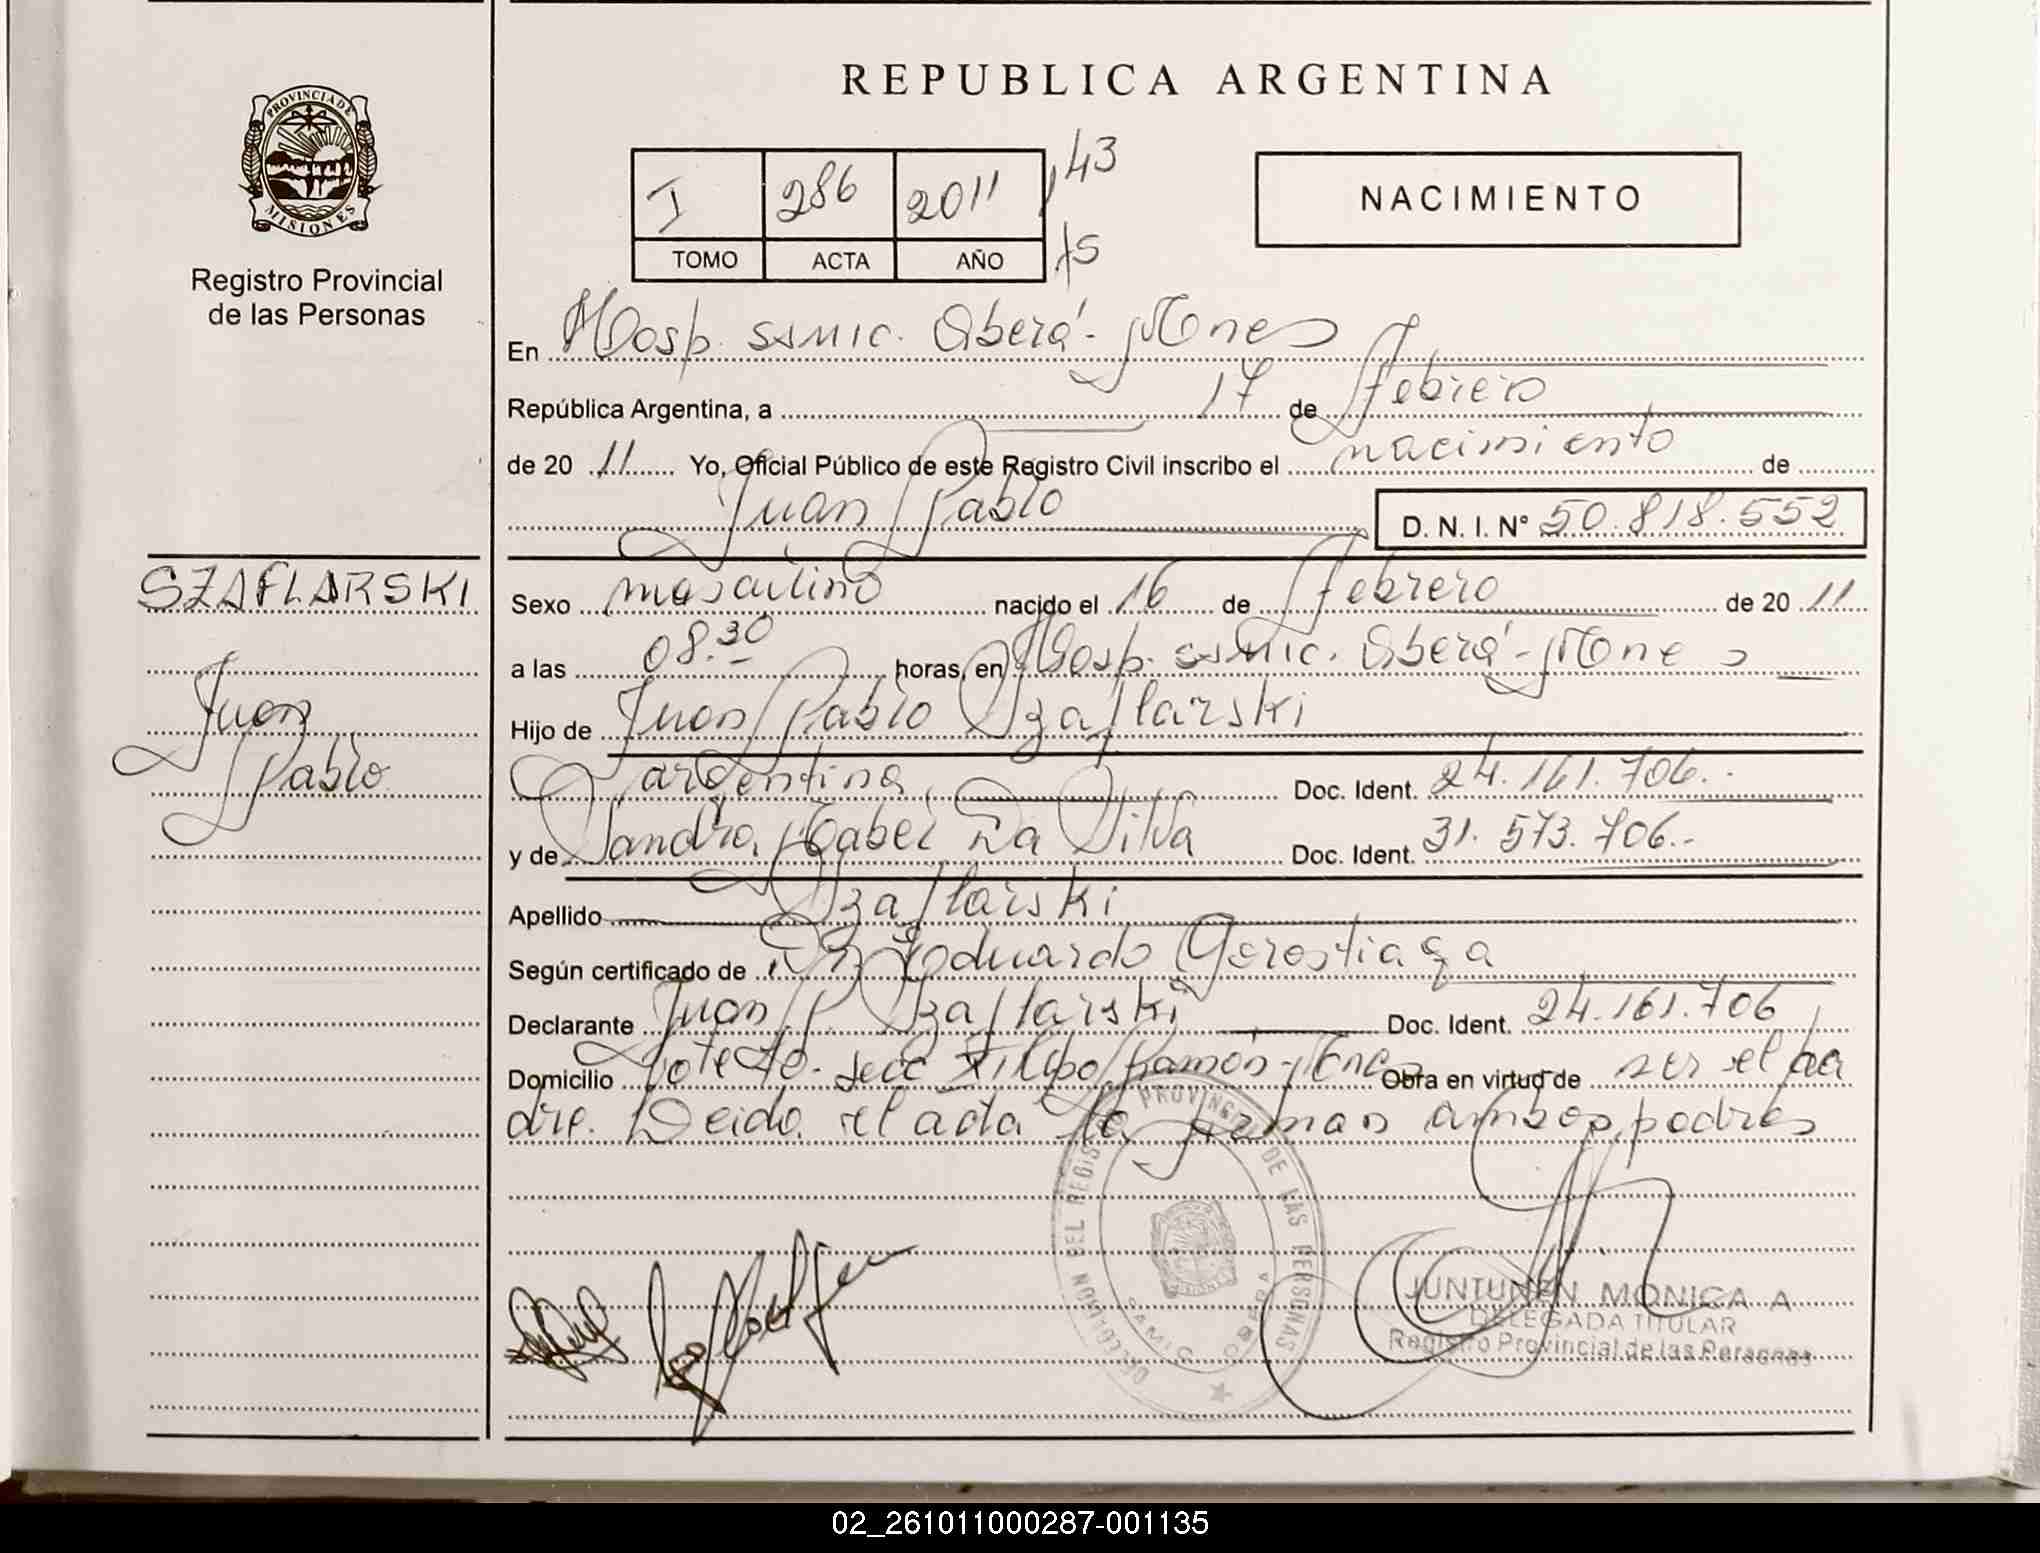 PROVINCIA DE
MISIONES
Registro Provincial
de las Personas
REPUBLICA ARGENTINA
I 286 2011 43
TOMO ACTA AÑO 75
NACIMIENTO
En Hosp. SSMIC. Oberá - Mnes
República Argentina, a 17 de Febrero
de 2011 Yo, Oficial Público de este Registro Civil inscribo el nacimiento de
Juan Pablo D. N. I. Nº 50.818.552
SZAFLARSKI
Juan
Pablo
Sexo masculino nacido el 16 de Febrero de 2011
a las 08.30 horas, en Hosp. SSMIC. Oberá - Mnes
Hijo de Juan Pablo Szaflarski
argentina Doc. Ident. 24.161.706.-
y de Sandra Isabel Da Silva Doc. Ident. 31.573.706.-
Apellido Szaflarski
Según certificado de Dr. Eduardo Gorostiaga
Declarante Juan P. Szaflarski Doc. Ident. 24.161.706
Domicilio Lote Secc Ramón - Mnes Obra en virtud de ser el pa
dre. Leida el acta la firman ambos padres
DELEGACION DEL REGISTRO PROVINCIAL DE LAS PERSONAS
SAMIC OBERA
JUNTUNEN MONICA A
DELEGADA TITULAR
Registro Provincial de las Personas
02_261011000287-001135